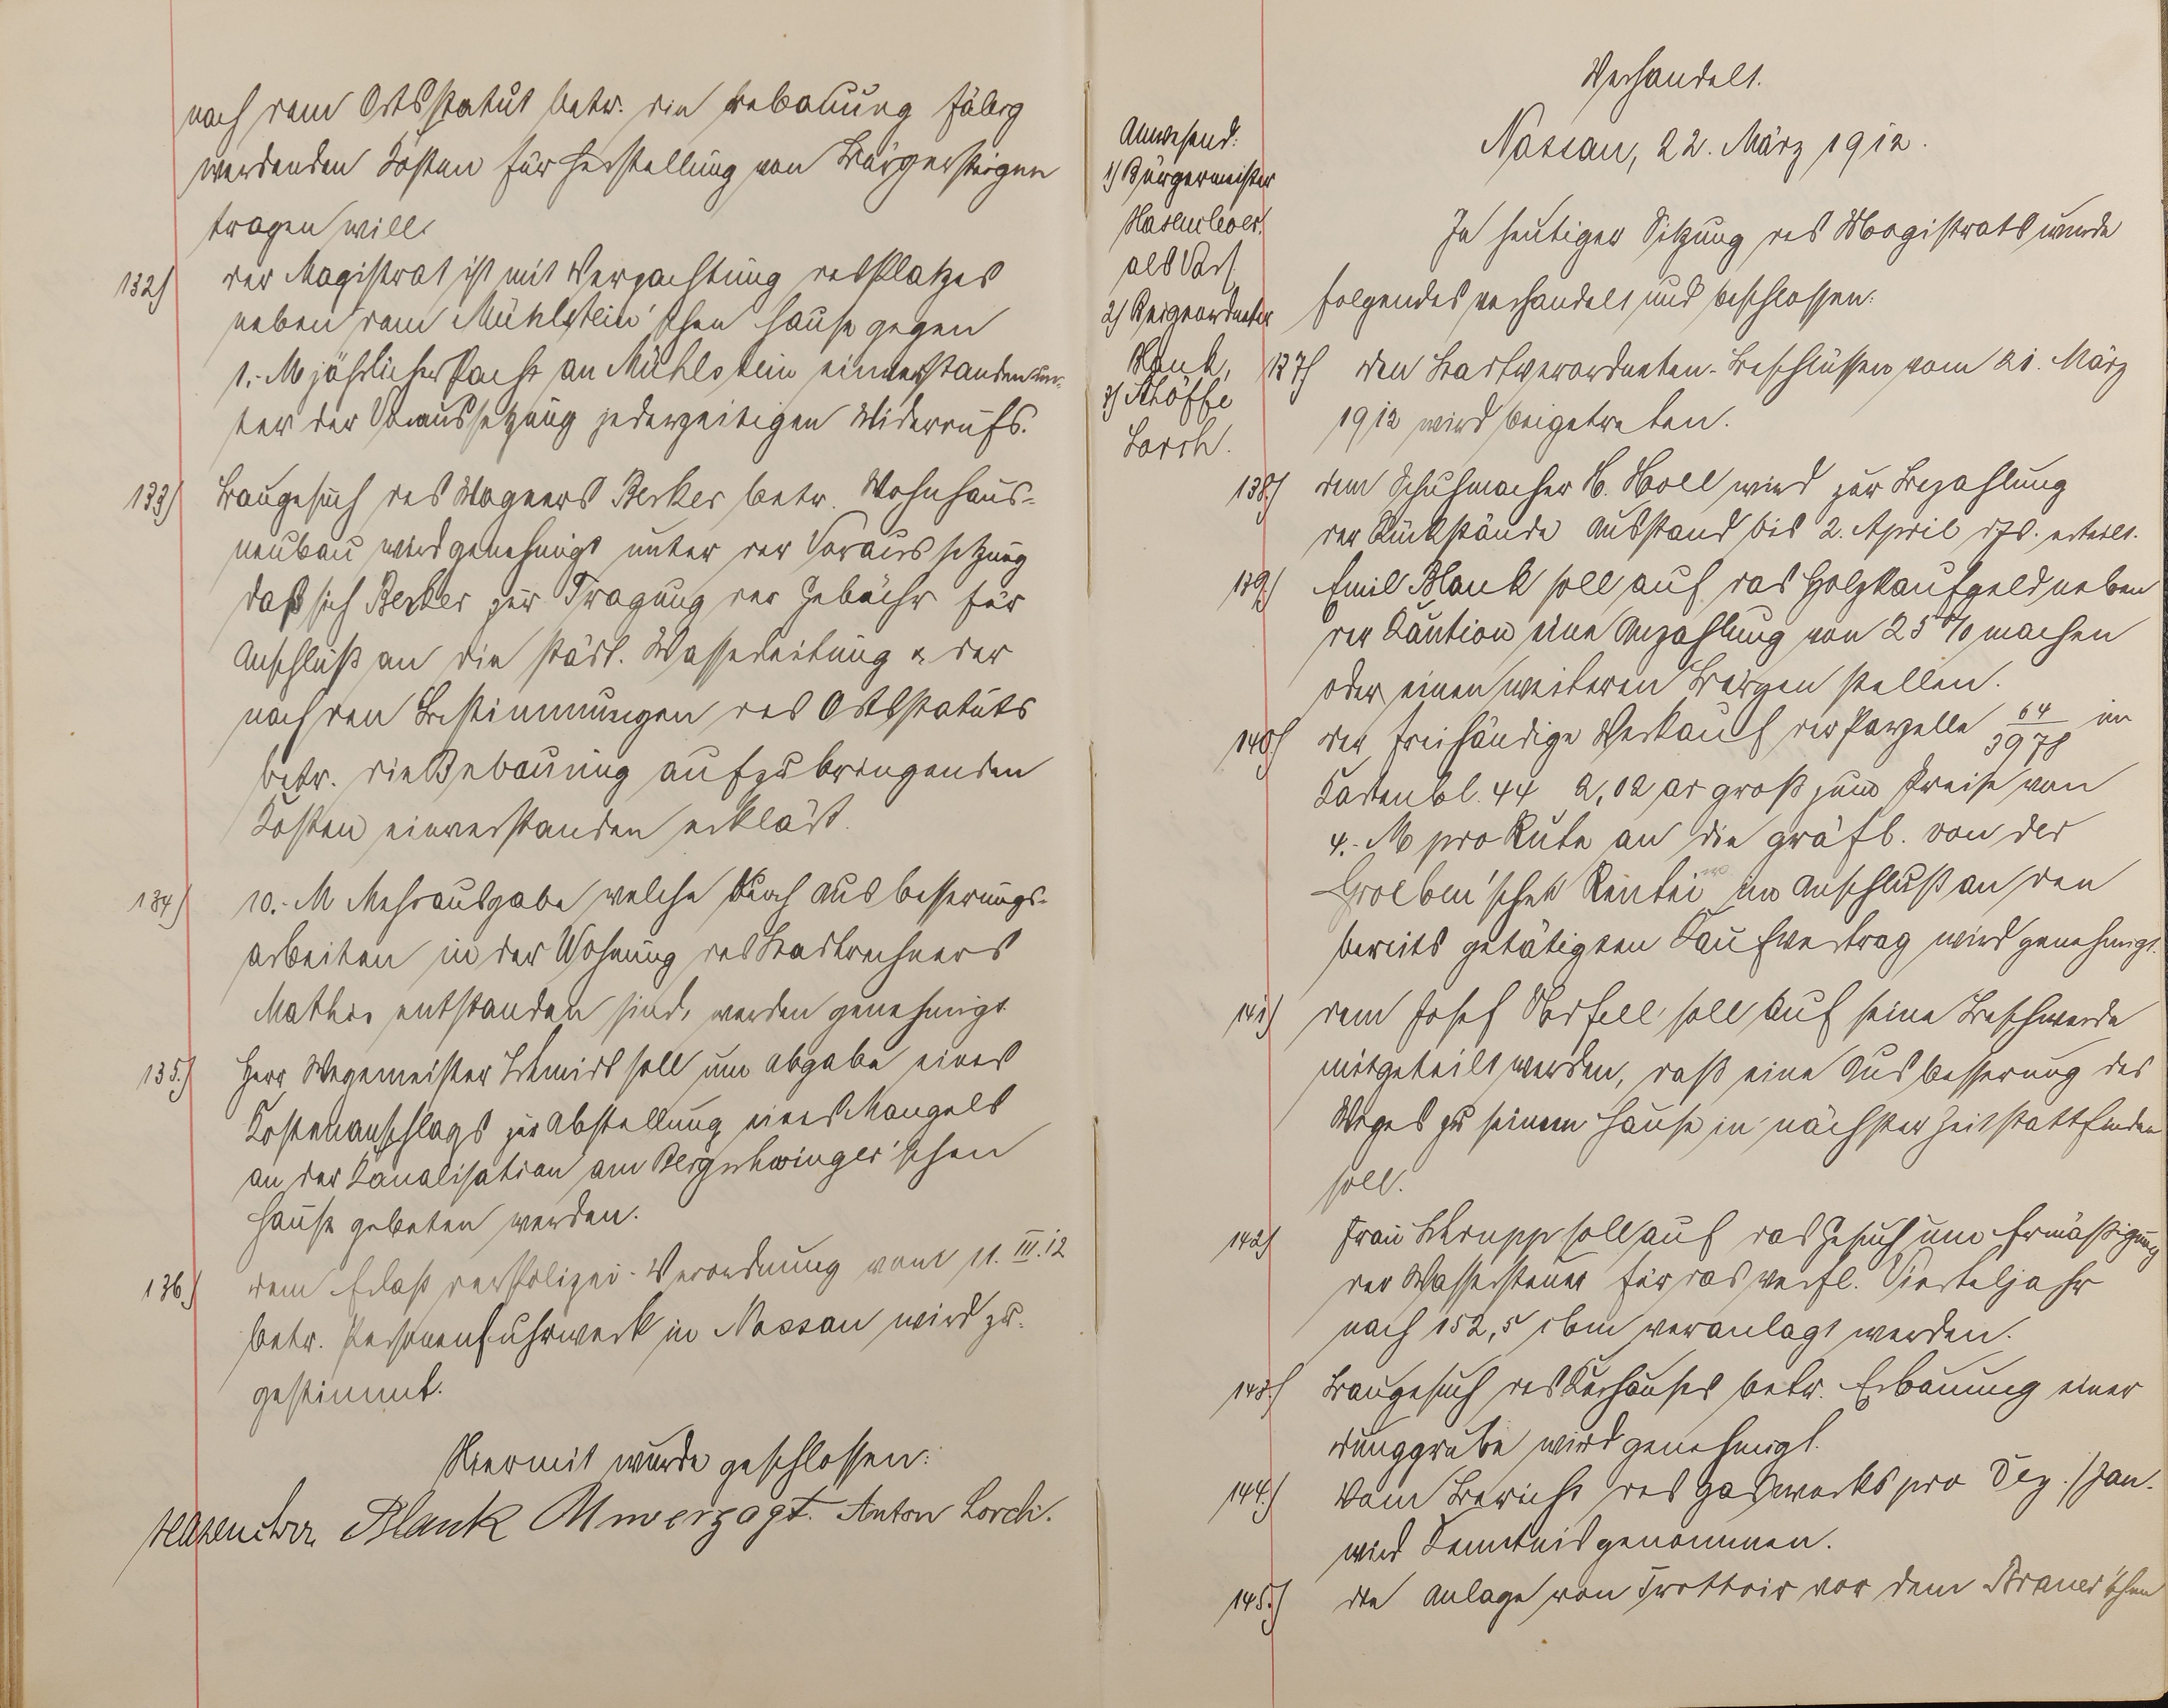 nach dem Ortsstatut betr. die Bebauung fällig
werdenden Kosten für Herstellung von Bürgersteigen
tragen will.
132) der Magistrat ist mit Verpachtung des Platzes
neben dem Mühlstein'schen Hause gegen
1.- M jährlicher Pacht an Mühlstein einverstanden un-
ter der Voraussetzung jederzeitigen Widerrufs.
133) Baugesuch des Wagners Becker betr. Wohnhaus-
neubau wird genehmigt unter der Voraussetzung
daß sich Becker zur Tragung der Gebühr für
Anschluß an die städt. Wasserleitung u. der
nach den Bestimmungen des Ortsstatuts
betr. die Bebauung aufzubringenden
Kosten einverstanden erklärt.
134) 10.- M Mehrausgabe welche durch Ausbesserungs-
arbeiten in der Wohnung des Stadtrechners
entstanden sind, werden genehmigt.
135.) Herr Wegemeister Schmidt soll um Abgabe eines
Kostenanschlags zur Abstellung eines Mangels
an der Kanalisation am Bergschwinger'schen
Hause gebeten werden.
136.) dem Erlaß der Polizei-Verordnung vom 11. III. 12
betr. Personenfuhrwerk in Nassau wird zu-
gestimmt.
Hiermit wurde geschlossen:
Hasenclever Blank Unverzagt. Anton Lorch.
Verhandelt.
Nassau, 22. März 1912.
Anwesend:
1) Bürgermeister
Hasenclever
als Vors.
2) Beigeordneter
Blank,
3) Schöffe
Lorch.
In heutiger Sitzung des Magistrats wurde
folgendes verhandelt und beschlossen:
137) den Stadtverordneten-Beschlüssen vom 21. März
1912 wird beigetreten.
138.) dem Schuhmacher H. Noll wird zur Bezahlung
der Rückstände Ausstand bis 2. April d. Js. erteilt.
139.) Emil Blank soll auf das Holzkaufgeld neben
der Kaution eine Anzahlung von 25 % machen
oder einen weiteren Bürgen stellen.
140.) der freihändige Verkauf der Parzelle 64/3978 im
Kartenbl. 44 2,02 ar groß zum Preise von
4.- M pro Rute an die gräfl. von der
Groeben'schen Rentei im Anschluß an den
bereits getätigten Kaufvertrag wird genehmigt.
141) dem Josef soll auf seine Beschwerde
mitgeteilt werden, daß eine Ausbesserung des
Weges zu seinem Hause in nächster Zeit stattfinden
soll.
142) Frau Schrupp soll auf das Gesuch um Ermäßigung
der Wassersteuer für das verfl. Vierteljahr
nach 152,5 cbm veranlagt werden.
143.) Baugesuch des Kurhauses betr. Erbauung einer
Dunggrube wird genehmigt.
144.) Vom Bericht des Gaswerks pro Dez./Jan.
wird Kenntnis genommen.
145.) die Anlage von Trottoir vor dem Brauer'schen